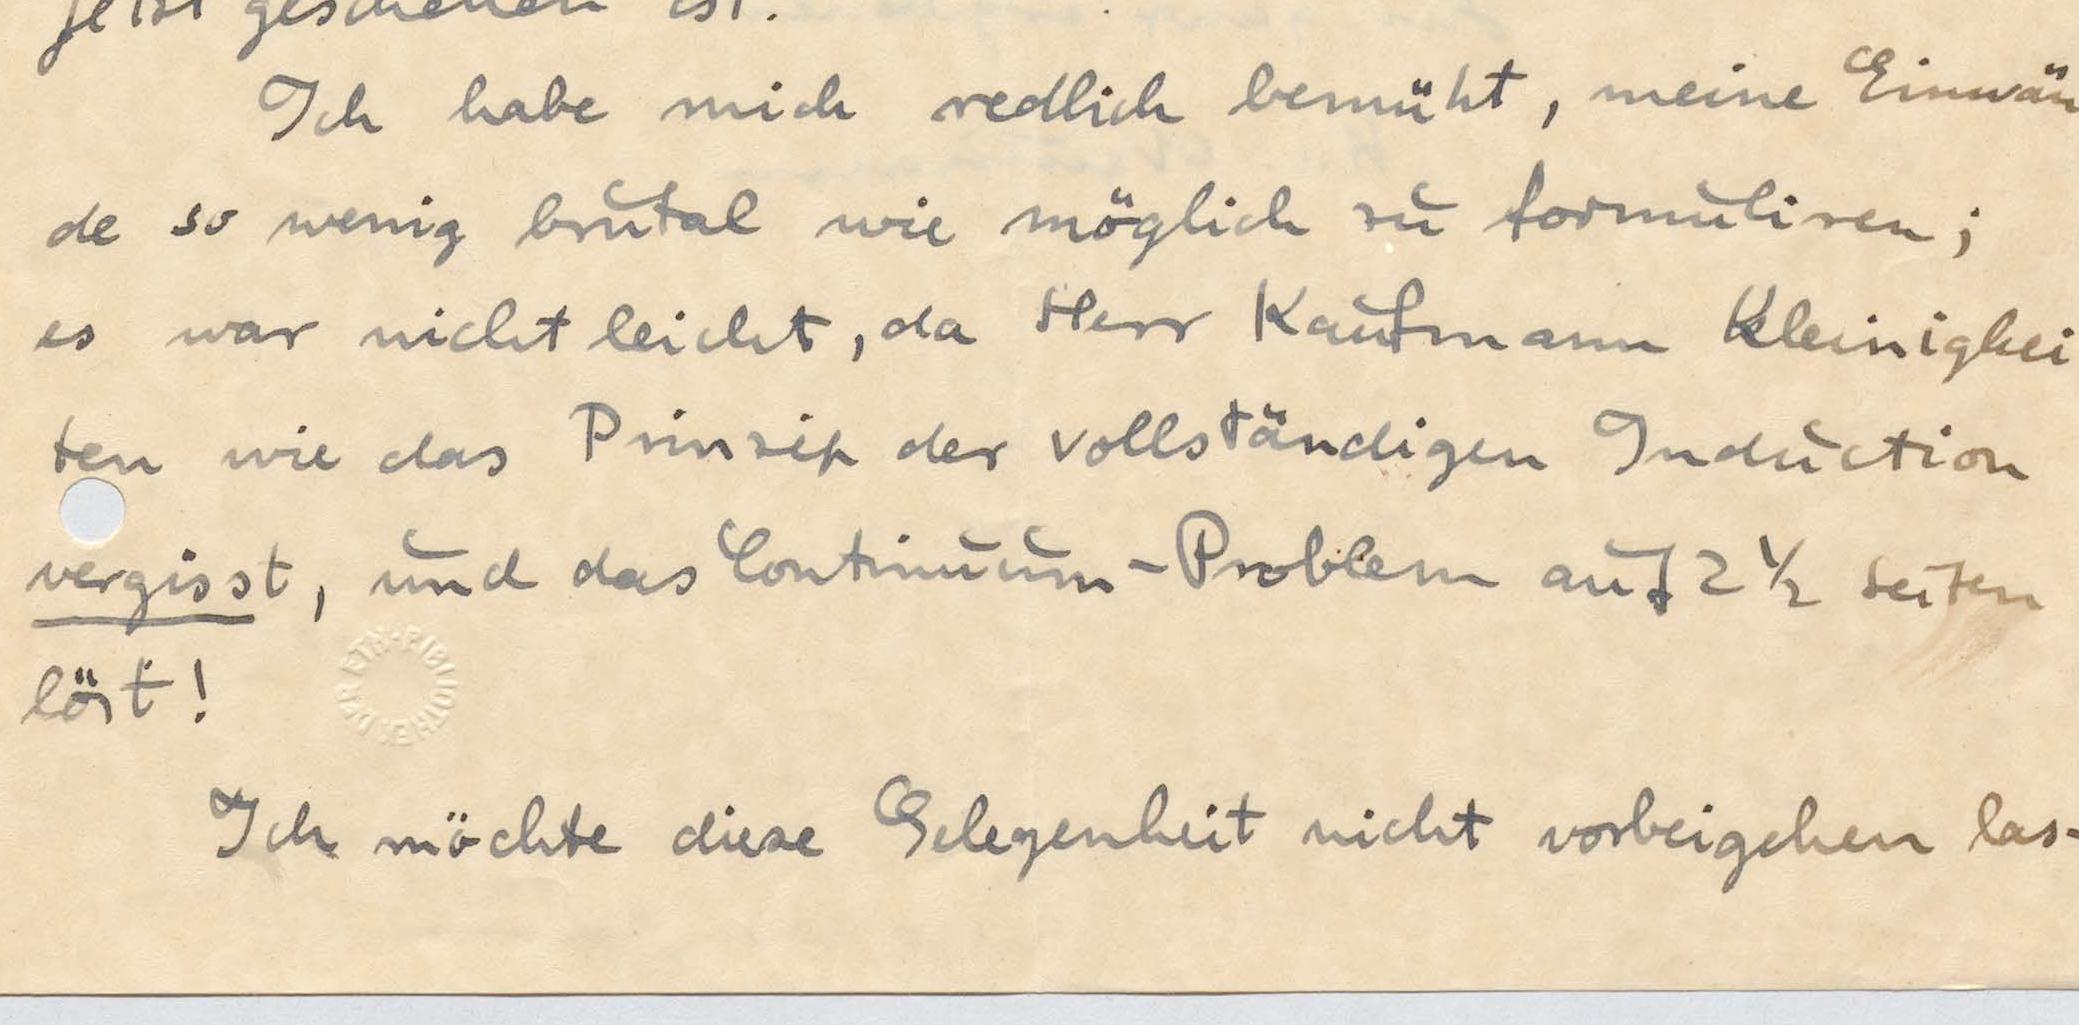 jetzt geschehen ist.
Ich habe mich redlich bemüht, meine Einwän
de so wenig brutal wie möglich zu formuliren;
es war nicht leicht, da Herr Kaufmann Kleinigkei
ten wie das Prinzip der vollständigen Induction
vergisst, und das Continuum-Problem auf 2 1/2 Seiten
löst!
DER ETH-BIBLIOTHEK
Ich möchte diese Gelegenheit nicht vorbeigehen las-